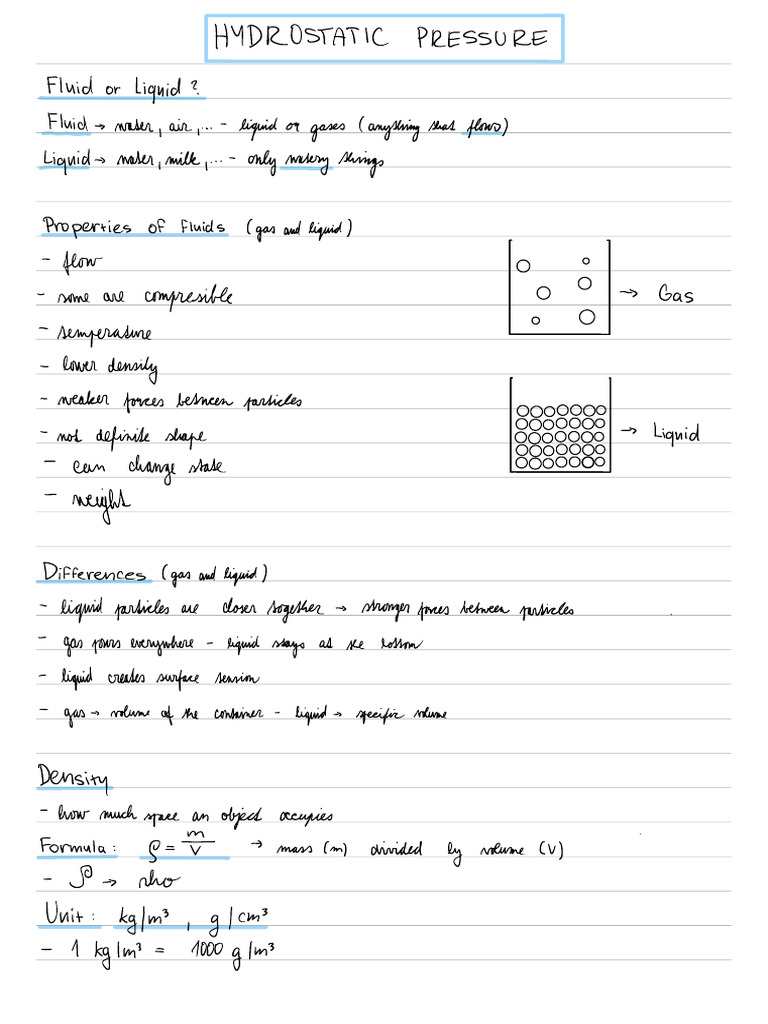 HYDROSTATIC PRESSURE
Fluid or Liquid?
Fluid → water, air, ... - liquid or gases (anything that flows)
Liquid → water, milk, ... - only watery things
Properties of Fluids (gas and liquid)
- flow
- some are compresible
→ Gas
- temperature
- lower density
- weaker forces between particles
- not definite shape
→ Liquid
- can change state
- weight
Differences (gas and liquid)
- liquid particles are closer together → stronger forces between particles
- gas pours everywhere - liquid stays at the bottom
- liquid creates surface tension
- gas → volume of the container - liquid → specific volume
Density
- how much space an object occupies
Formula: ρ = m/V → mass (m) divided by volume (V)
- ρ → rho
Unit: kg/m³, g/cm³
- 1 kg/m³ = 1000 g/m³